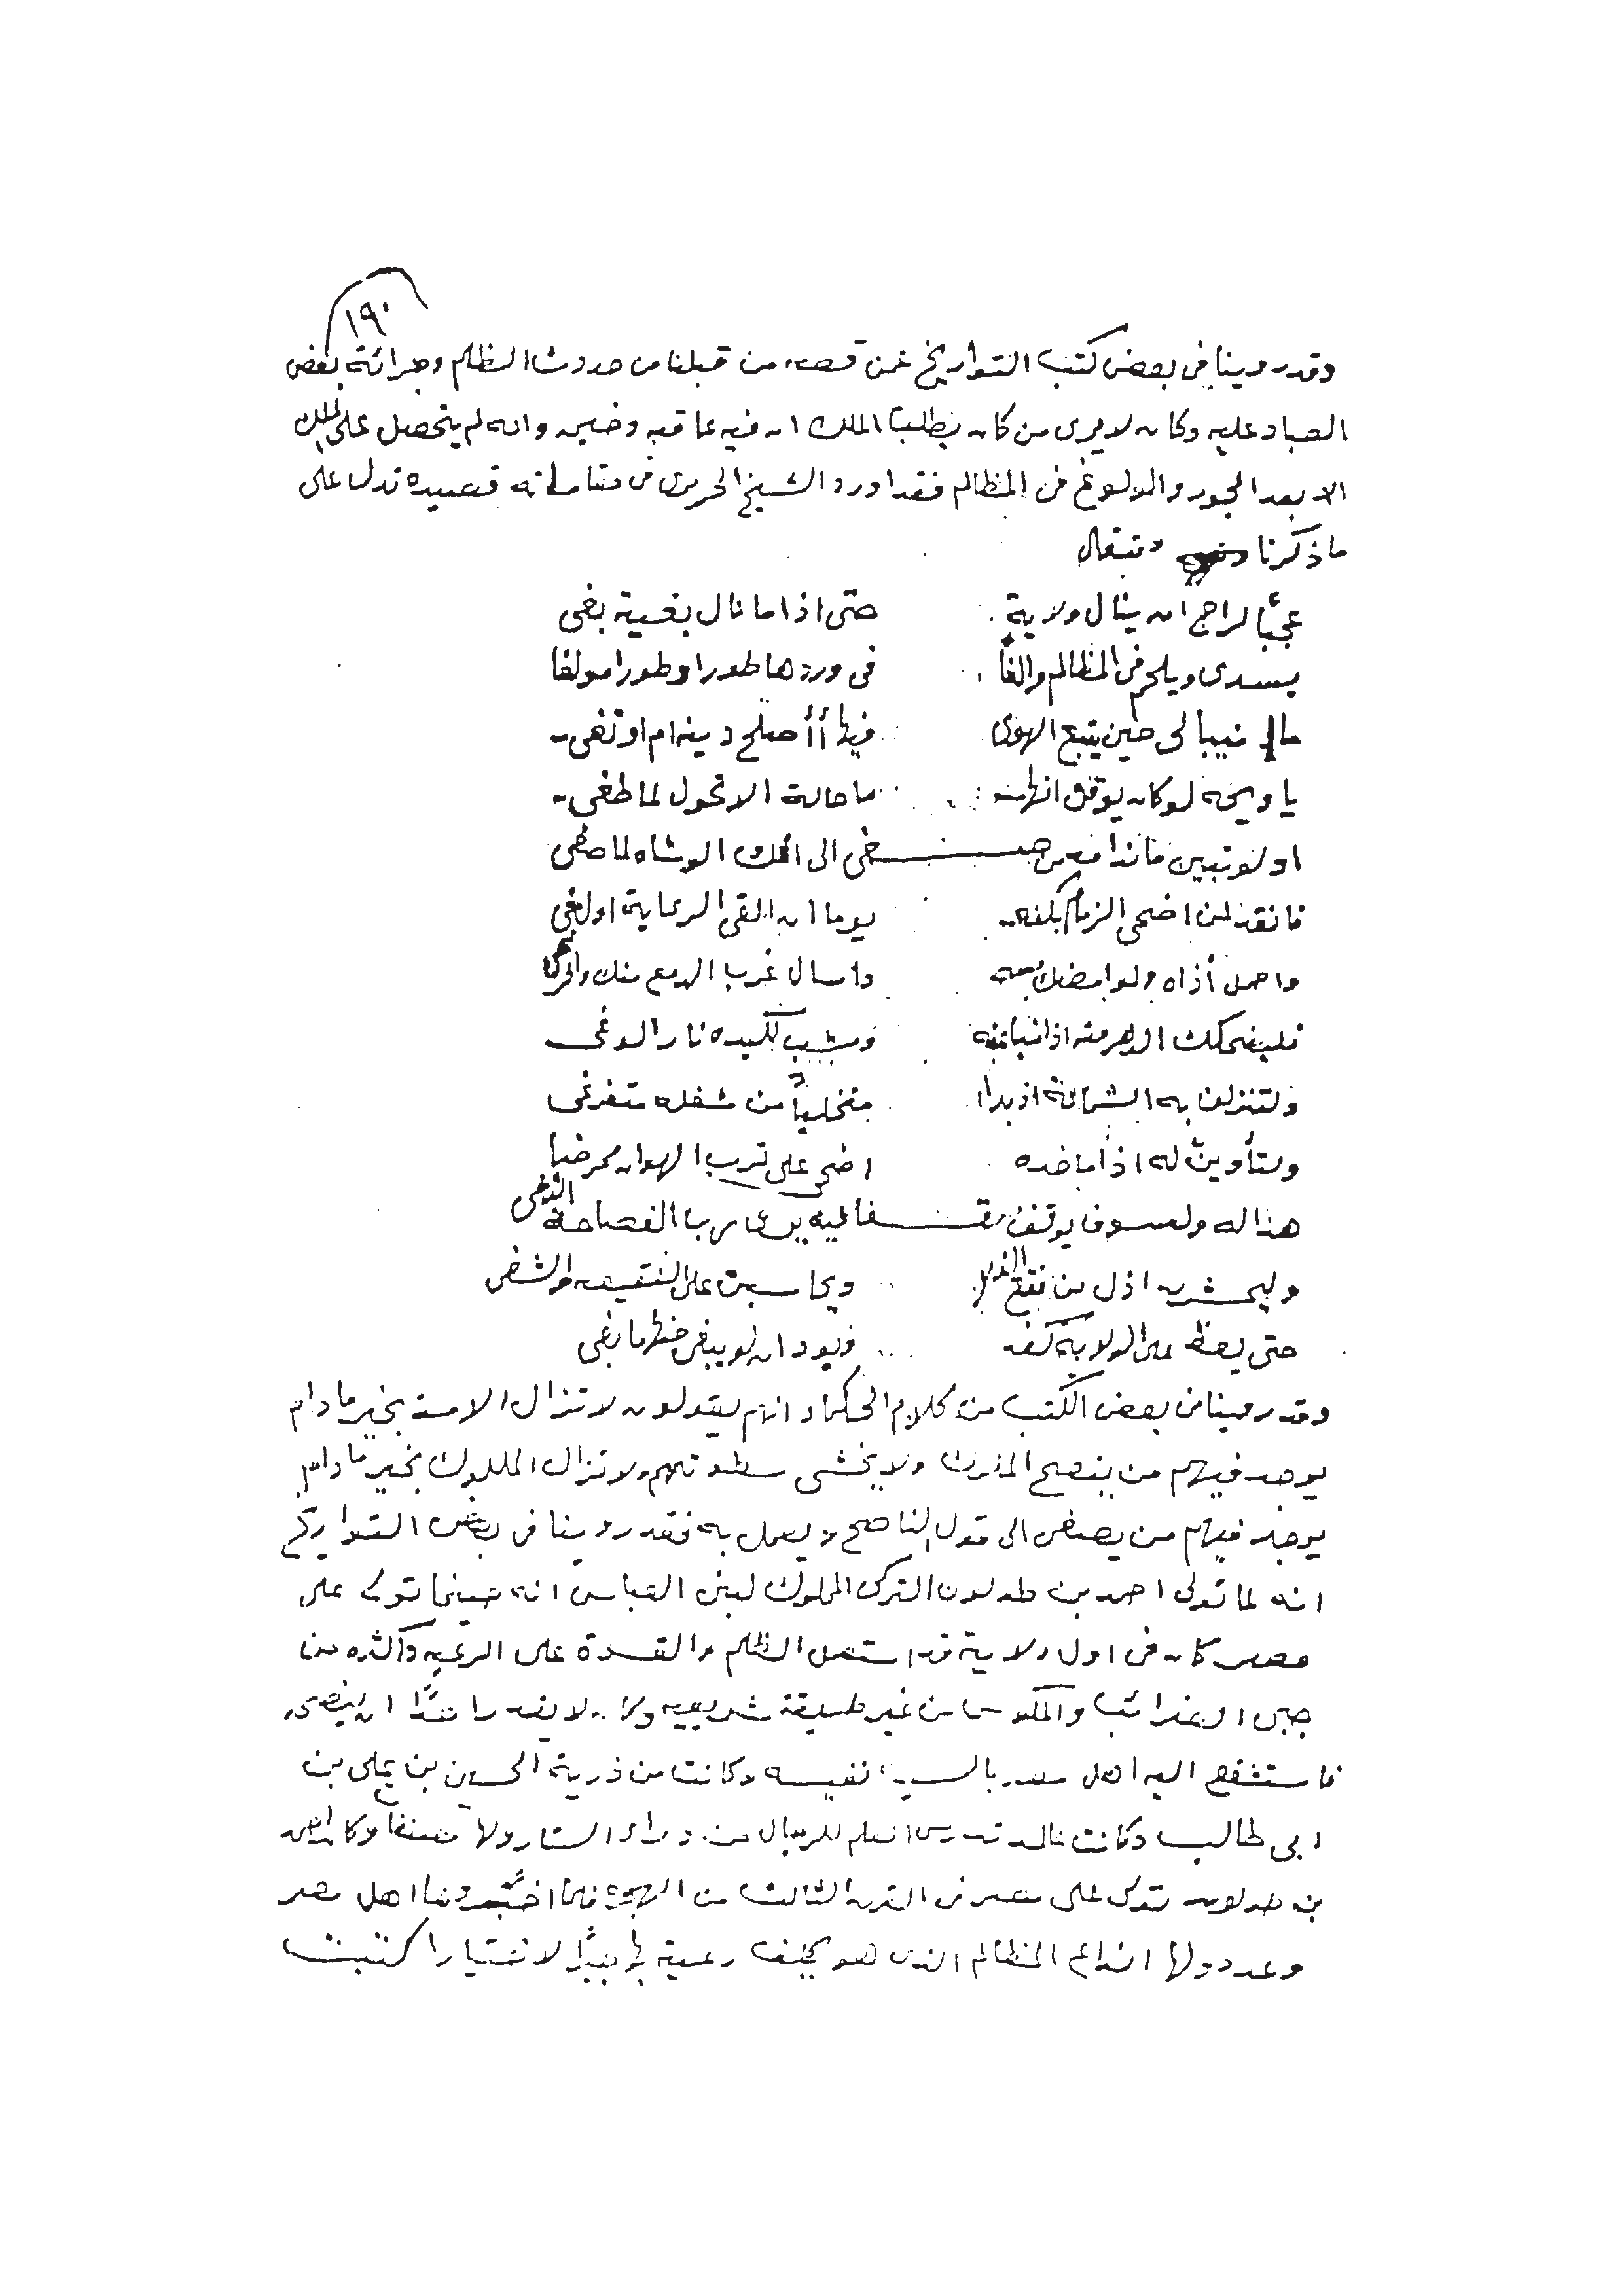 ١٩٠
وقد روينا في بعض كتب التواريخ عن قصه من قبلنا من حدوث الظلم وجرائة بعض
العباد عليه وكان لا يرى من كان يطلب الملك ان فيه عاقبه وخيمه وانه لم يتحصل على الملك
الا بعد الجور والولوغ في المظالم فقد اورد الشيخ الحريري في مقاماته قصيده تدل على
ما ذكرنا فقال
عجبًا لراج ان ينال ولاية حتى اذا ما نال بغيته بغى
يسدى ويلحم في المظالم والغًا في وردها طورا وطورا مولغا
ما ان يبالى حين يتبع الهوى فيها أأصلح دينه ام اوتغى
يا ويحه لو كان يوقن انه ما حالة الا تحول لما طغى
او لو تبين ما ندامة من صغى الى افك الوشاه لما صغى
فانقد لمن اضحى الزمام بكفه يوما ان القى الرعاية او لغى
واحمل أذاه ولو امضك مسه واسال غرب الدمع منك وافرغا
فليضحكنك الدهر منه اذا نبا عنه وشب لكيده نار الوغى
ولتنزلن به الشماتة اذ بدا متخلياً من شغله متفرغى
ولتأوين له اذا ما خده اضحى على ترب الهوان ممرغا
هذا له ولسوف يوقف موقفا فيه يرى رب الفصاحة الثغى
وليحشرن اذل من فقع الفلا ويحاسبن على النقيصه والشغى
حتى يعض على الولاية كفه ويود ان لو يبغى منها ما بغى
وقد روينا في بعض الكتب من كلام الحكماء انهم يقولون لا تزال الامة بخير ما دام
يوجد فيهم من ينصح الملوك ولا يخشى سطوتهم ولا تزال الملوك بخير ما دام
يوجد فيهم من يصغى الى قول الناصح ويعمل به فقد روينا في بعض التواريخ
انه لما تولى احمد بن طولون التركى المملوك لبنى العباس انه حينما تولى على
مصر كان في اول ولاية قد استعمل الظلم والقسوة على الرعيه واكثره من
جبى الضرائب والمكوس من غير طريقة شرعيه لا يقدر احدًا ان ينصحه
فاستشفع اليه اهل مصر بالسيده نفيسه وكانت من ذرية الحسين بن على بن
ابى طالب وكانت عالمه تدرس العلم للرجال من وراء الستار ولها مصنفا وكان احمد
بن طولون تولى على مصر في القرن الثالث من الهجرة فلما اخبروها اهل مصر
وعددولها انواع المظالم الذى هو يكلف رعيته كتبت